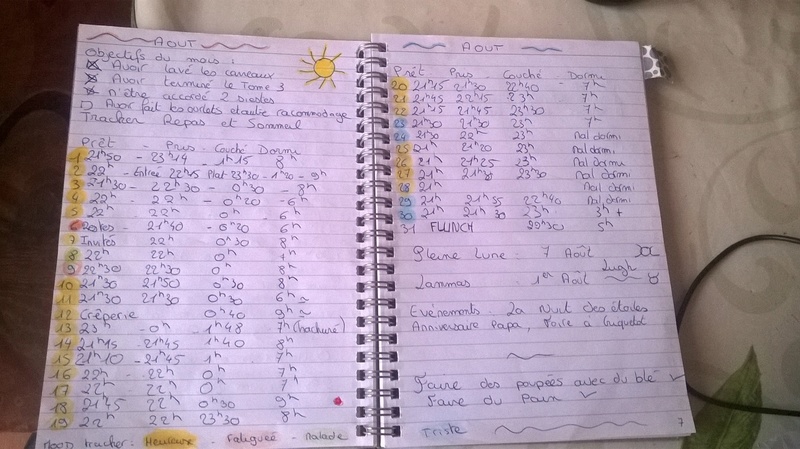 AOUT
Objectifs du mois :
Avoir lavé les carreaux
Avoir terminé le Tome 3
N'être accordé 2 siestes
Avoir fait 20 ourlets et autre racommodage
Tracker Repas et Sommeil
Prêt - Pris - Couché Dormu
1 21h50 - 23h14 - 1h15 8h
2 22h - Entrée 22h15 Plat 23h30 - 1h20 - 9h
3 21h30 - 22h30 - 0h30 - 8h
4 22h - 22h - 0h20 - 6h
5 22h 22h 0h 6h
6 Restes - 21h40 - 0h20 6h
7 Invités 22h 0h30 8h
8 22h 22h 0h
9 22h30 22h30 0h 8h
10 21h30 21h50 0h30 8h
11 21h30 21h30 0h30 6h ~
12 Crêperie 0h40 9h ~
13 23h - 0h - 1h48 7h (haché)
14 21h15 - 21h45 1h40 8h
15 21h10 - 21h45 1h 7h
16 22h - 22h 0h 7h
17 22h 22h 0h 7h
18 21h45 22h 0h30 9h
19 22h 22h 23h30 8h
Mood tracker : Heureuse - Fatiguée - Malade
AOUT
Prêt Pris - Couché Dormu
20 21h45 21h30 22h40 7h
21 21h45 22h15 23h 7h
22 21h15 21h45 23h30 7h
23 21h30 21h30 23h 7h
24 21h30 22h 23h Mal dormi
25 21h 21h20 23h Mal dormi
26 21h 21h25 23h Mal dormu
27 21h 21h30 23h30 Mal dormi
28 21h Mal dormi
29 21h 21h35 22h40 Mal dormi
30 21h 21h30 23h 3h +
31 FLUNCH 22h30 5h
Pleine Lune : 7 Août
Lugh
Lammas : 1er Août
Evénements : La Nuit des étoiles
Anniversaire Papa, Foire à
Faire des poupées avec du blé ✓
Faire du Pain ✓
Triste
7